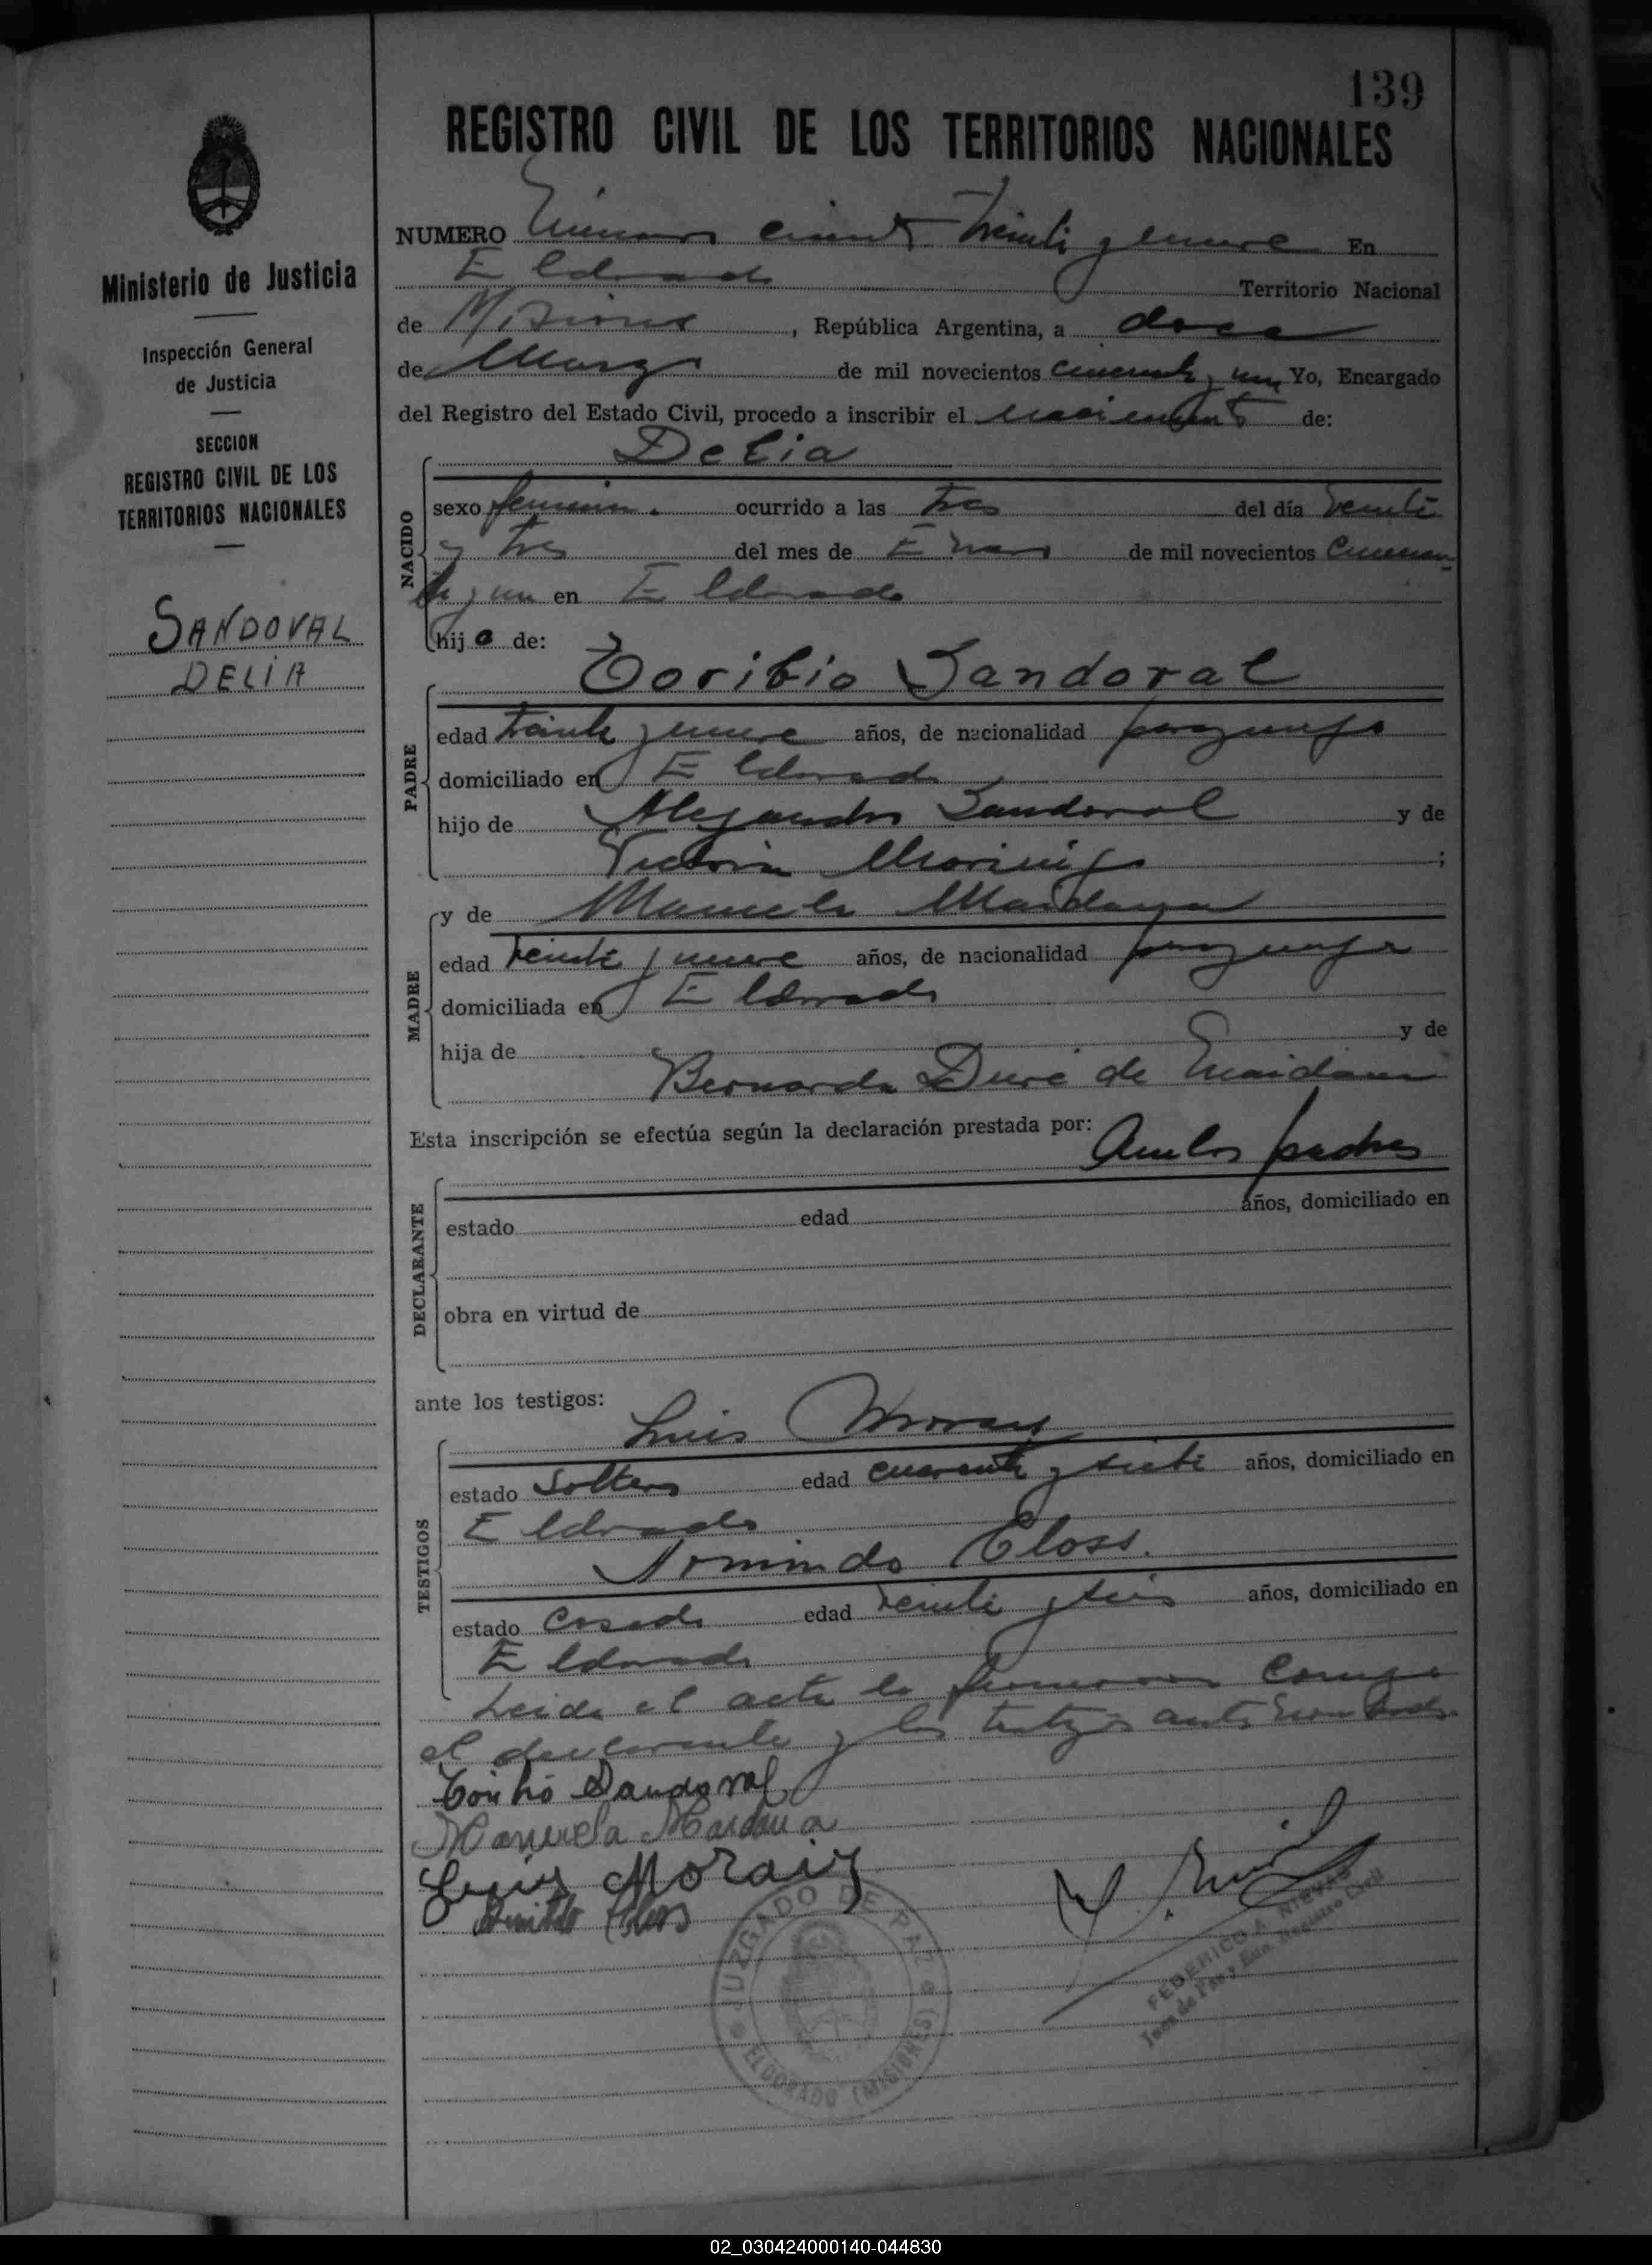 139
REGISTRO CIVIL DE LOS TERRITORIOS NACIONALES
Ministerio de Justicia
Inspección General
de Justicia
SECCION
REGISTRO CIVIL DE LOS
TERRITORIOS NACIONALES
SANDOVAL
DELIA
NUMERO Número ciento treinta y nueve En
Eldorado Territorio Nacional
de Misiones, República Argentina, a doce
de Marzo de mil novecientos cincuenta y un Yo, Encargado
del Registro del Estado Civil, procedo a inscribir el nacimiento de:
NACIDO
Delia
sexo femenin. ocurrido a las tres del día veinti
y tres del mes de Enero de mil novecientos cincuen-
ta y un en Eldorado
hija de:
PADRE
Toribio Sandoval
edad treinta y nueve años, de nacionalidad paraguayo
domiciliado en Eldorado
hijo de Alejandro Sandoval y de
Victoria Morinigo ;
MADRE
y de Manuela Maidana
edad veinti y nueve años, de nacionalidad paraguaya
domiciliada en Eldorado
hija de y de
Bernarda Duré de Maidana
Esta inscripción se efectúa según la declaración prestada por:
Ambos padres
DECLARANTE
estado edad años, domiciliado en
obra en virtud de
ante los testigos:
TESTIGOS
Luis Morais
estado Soltero edad cuarenta y siete años, domiciliado en
Eldorado
Armindo Closs.
estado Casado edad veinti y seis años, domiciliado en
Eldorado
Leida el acta la firmaron conmigo
el declarante y los testigos antes nombrados.
Toribio Sandoval
Manuela Maidana
Luis Morais
JUZGADO DE PAZ
ELDORADO (MISIONES)
FEDERICO A. NIEVAS
Juez de Paz y Enc. Registro Civil
02_030424000140-044830